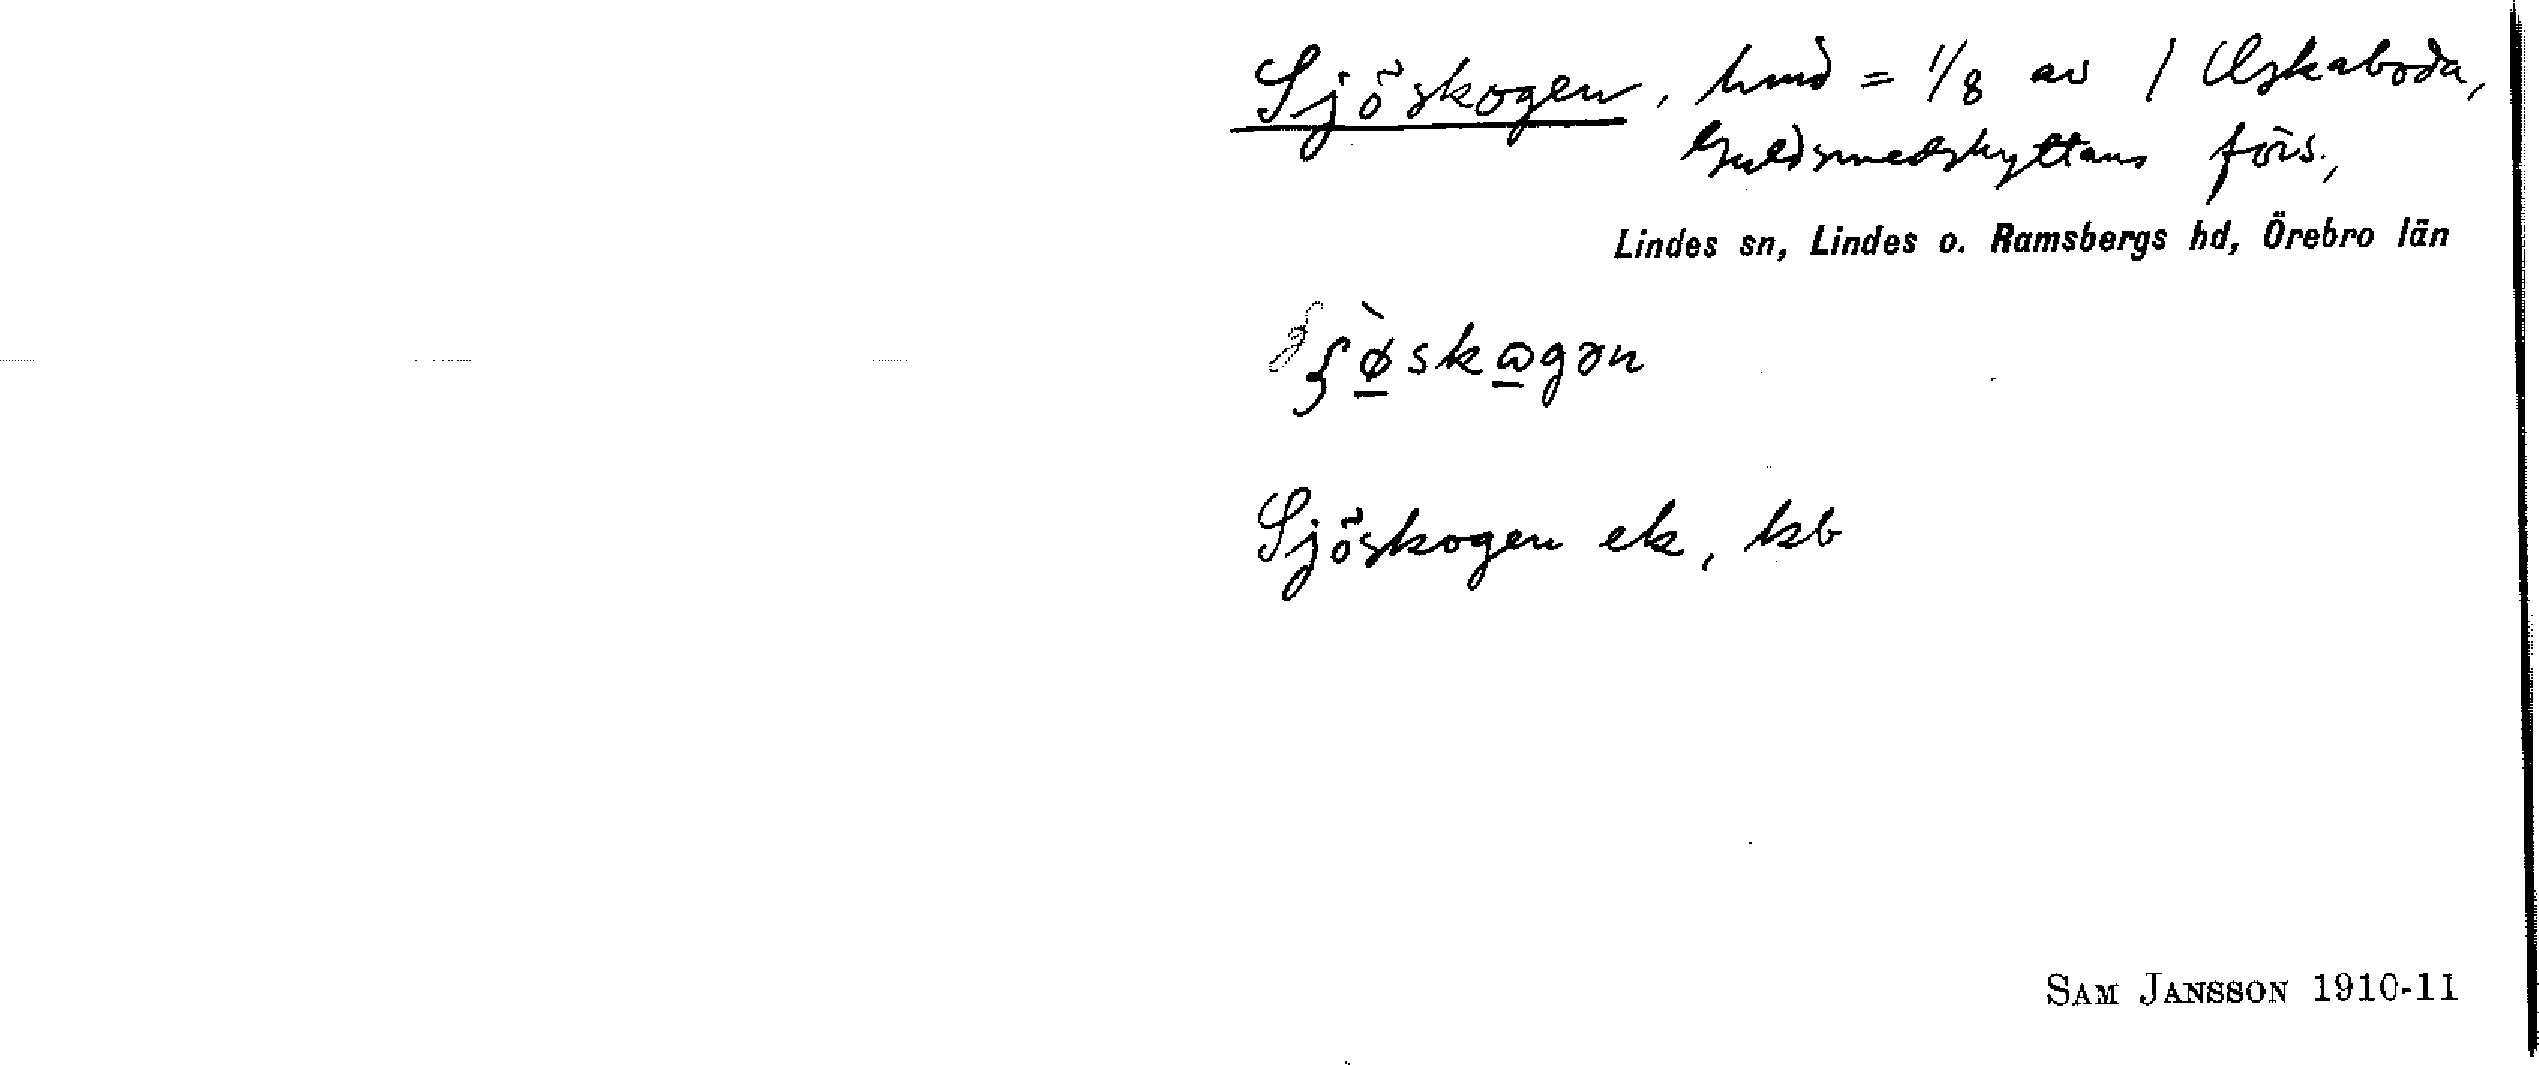 Sjöskogen, hmd = 1/8 av 1 Uskaboda,
Guldsmedshyttans förs.,
Lindes sn, Lindes o. Ramsbergs hd, Örebro län
Sjöskogen ek, kb
SAM JANSSON 1910-11